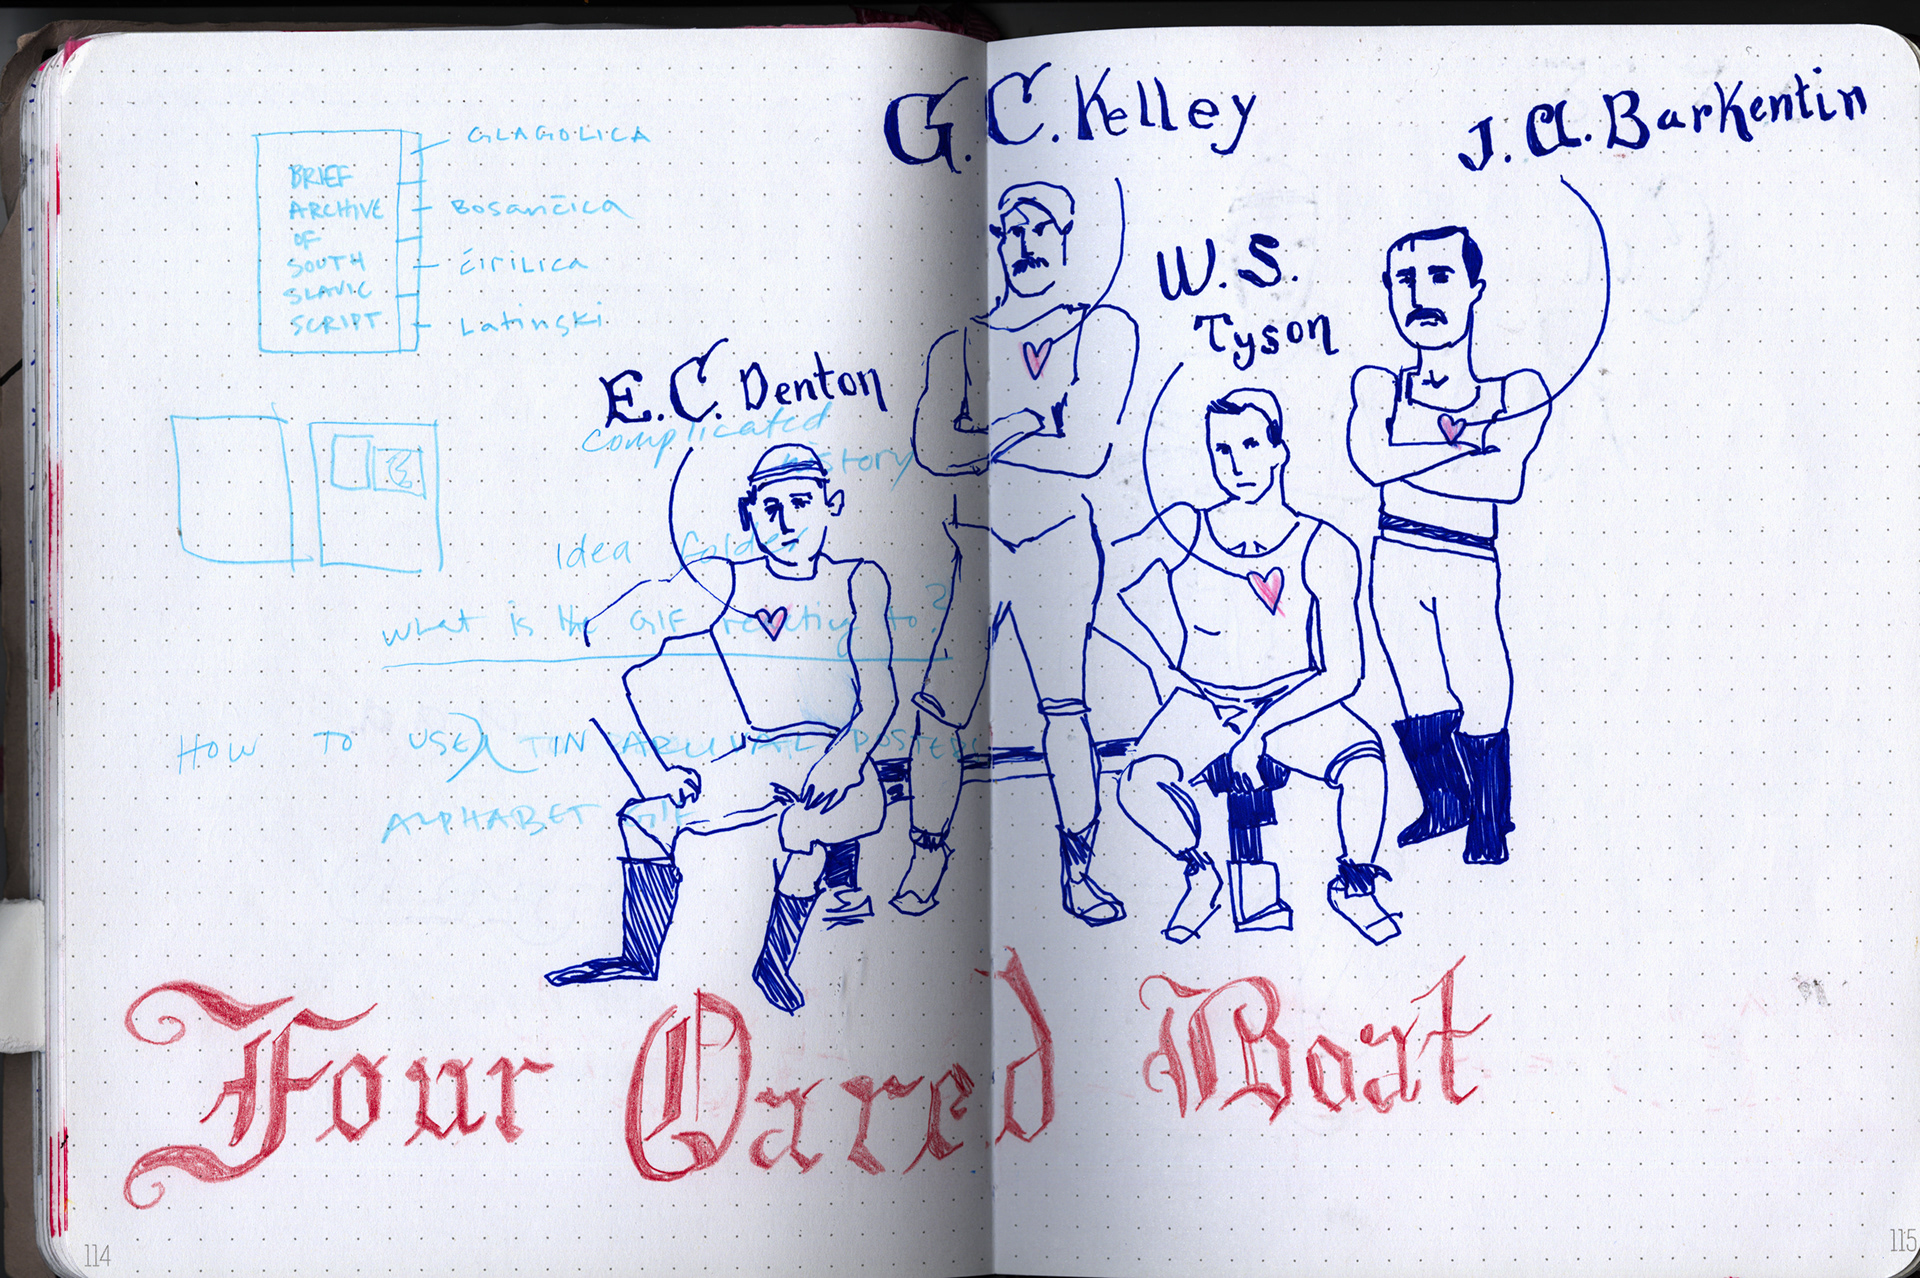 G.C. Kelley
J. A. Barkentin
W. S.
Tyson
E.C. Denton
BRIEF
ARCHIVE
OF
SOUTH
SLAVIC
SCRIPT
GLAGOLICA
BOSANČICA
ĆIRILICA
Latinski
complicated
history
Idea folder
what is the GIF relating to?
HOW TO USE TIN ARCHIVAL POSTERS
ALPHABET GIF
Four Oared Boat
114
115